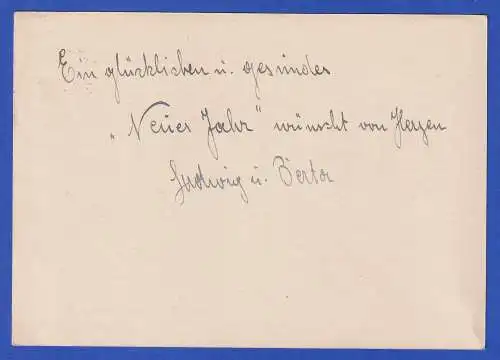 Ein glücklichen u. gesundes
„Neues Jahr" wünscht von Herzen
Ludwig u. Berta